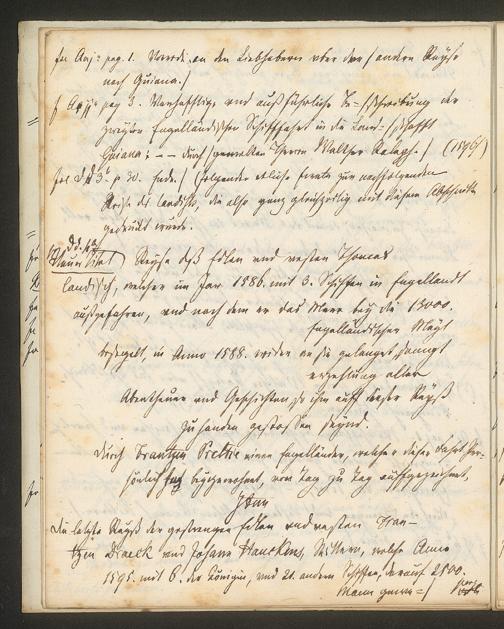 fo Aij: pag. 1. Vorrede an den Liebhabern uber der / andern Rayse
nach Guiana. /
f Aijj: pag 3. Warhafftige und außführliche Be= / schreibung der
zweyten Engelländischen Schifffahrt in die Land= / schafft
Guiana: - - durch / gemelten Herrn Walther Ralegh. / (1596)
fol d d 3: p 30. / folgender etliche zur nachfolgenden
Reise des Candish, die also ganz gleichzeitig mit diesem Abschnitte
gedruckt wurde.
Dd. 3
Reyse deß Edlen und vesten Thomas
Candisch, welcher im Jar 1586. mit 3. Schiffen in Engellandt
außgefahren, und nach dem er das Meer bey die 13000.
Engelländischer Meyl
besegelt, in Anno 1588. wider an sie gelanget, sampt
erzehlung aller
Abentheuer und Geschichten, so ihm auff dieser Reyß
zu handen gestossen seynd.
durch Frantzen Prettie einen Engelländer, welcher dieser Fahrt Per=
sönlich beygewohnet, von Tag zu Tag auffgezeichnet,
Item
Die letzte Reyß der gestrengen Edlen und vesten Fran=
tzen Draeck und Johann Hauckens, Rittern, welche Anno
1595. mit 6. der Königin, und 21. andern Schiffen, darauf 2500.
Mann